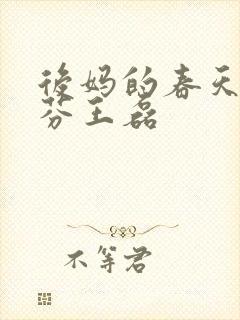 後妈的春天
芬王磊
不等君